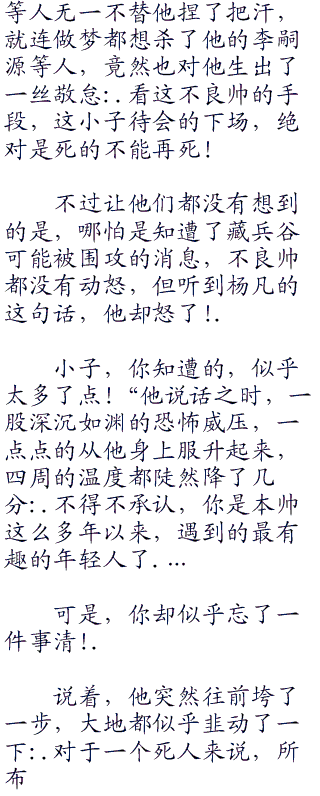 等人无一不替他捏了把汗，
就连做梦都想杀了他的李嗣
源等人，竟然也对他生出了
一丝敬怠:.看这不良帅的手
段，这小子待会的下场，绝
对是死的不能再死！
不过让他们都没有想到
的是，哪怕是知遭了藏兵谷
可能被围攻的消息，不良帅
都没有动怒，但听到杨凡的
这句话，他却怒了！.
小子，你知遭的，似乎
太多了点！“他说话之时，一
股深沉如渊的恐怖威压，一
点点的从他身上服升起来，
四周的温度都陡然降了几
分:.不得不承认，你是本帅
这么多年以来，遇到的最有
趣的年轻人了....
可是，你却似乎忘了一
件事清！.
说着，他突然往前垮了
一步，大地都似乎韭动了一
下:.对于一个死人来说，所
布